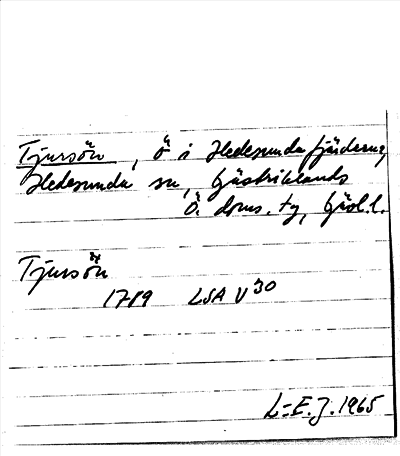 Tjursön, ö i Hedesundafjärdena,
Hedesunda sn, Gästriklands
Ö. doms. tg, Gävl. l.
Tjursön
1789 LSA V 30
L-E. J. 1965